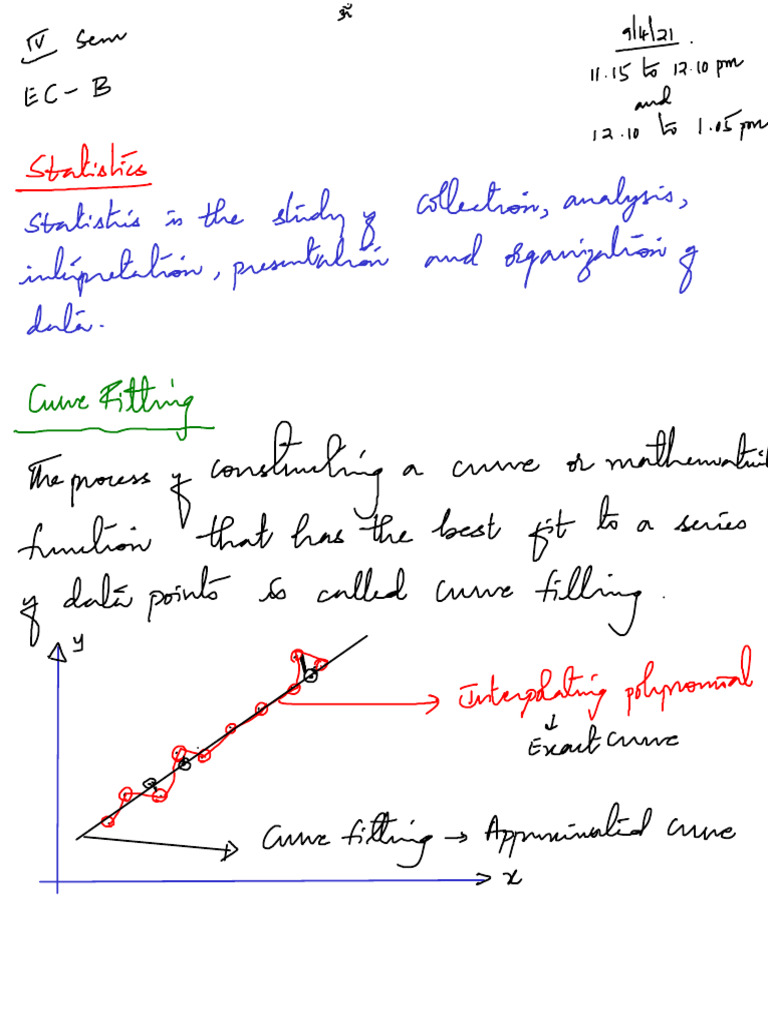 ॐ
IV Sem
9/4/21.
11.15 to 12.10 pm
EC-B
and
12.10 to 1.05 pm
Statistics
Statistics is the study of collection, analysis,
interpretation, presentation and organization of
data.
Curve Fitting
The process of constructing a curve or mathematical
function that has the best fit to a series
of data points is called curve fitting.
y
Interpolating polynomial
↓
Exact curve
Curve fitting → Approximated curve
x